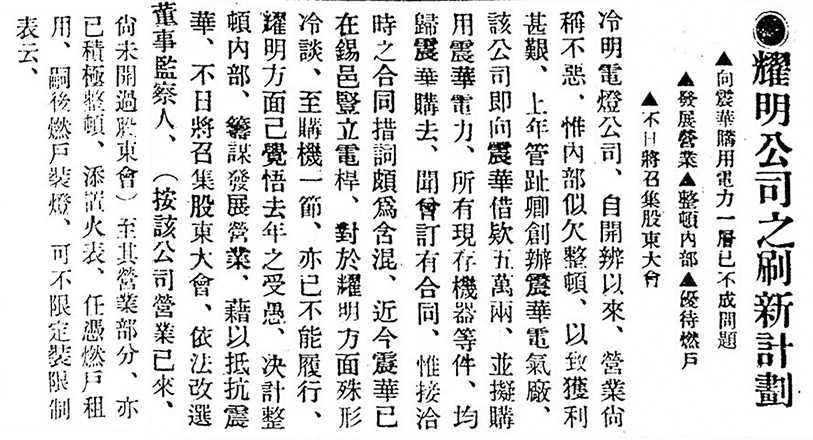 耀明公司之刷新計劃
▲向震華購用電力一層已不成問題
▲發展營業▲整頓內部▲優待燃戶
▲不日將召集股東大會
冷明電燈公司、自開辦以來、營業尙
稱不惡、惟內部似欠整頓、以致獲利
甚艱、上年管趾卿創辦震華電氣廠、
該公司即向震華借欵五萬兩、並擬購
用震華電力、所有現存機器等件、均
歸震華購去、聞曾訂有合同、惟接洽
時之合同措詞頗爲含混、近今震華已
在錫邑豎立電桿、對於耀明方面殊形
冷談、至購機一節、亦已不能履行、
耀明方面已覺悟去年之受愚、决計整
頓內部、籌謀發展營業、藉以抵抗震
華、不日將召集股東大會、依法改選
董事監察人、（按該公司營業已來、
尙未開過股東會）至其營業部分、亦
已積極整頓、添置火表、任憑燃戶租
用、嗣後燃戶裝燈、可不限定裝限制
表云、